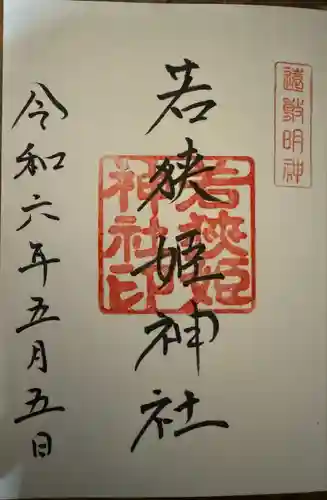 遠敷明神
若狭姫神社
若狭姫神社印
令和六年五月五日